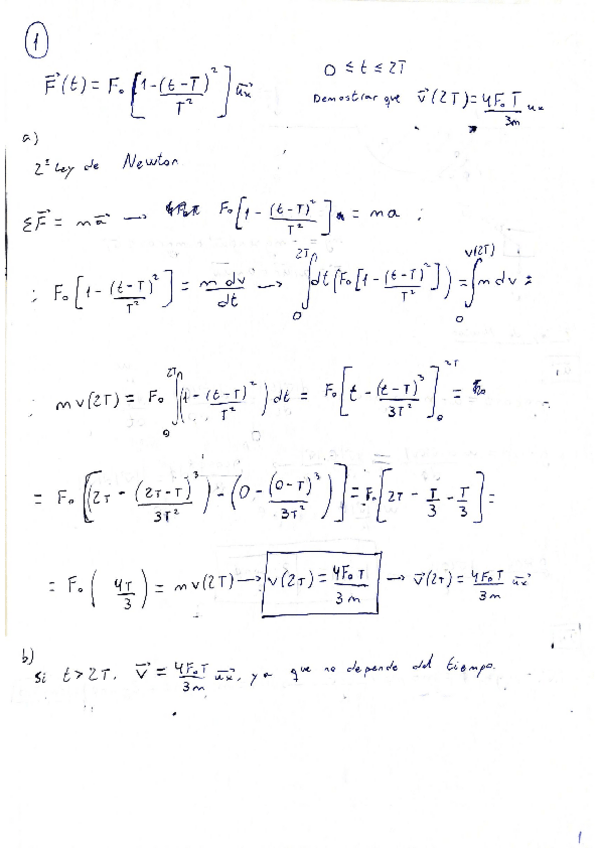 1
F⃗(t) = F₀ [1 - (t-T)²/T²] u⃗x    0 ≤ t ≤ 2T
Demostrar que v⃗(2T) = 4F₀T/3m ux
a)
2ª Ley de Newton
ΣF⃗ = ma⃗ → F₀[1 - (t-T)²/T²] = ma ;
; F₀[1 - (t-T)²/T²] = m dv/dt → ∫₀^2T dt(F₀[1 - (t-T)²/T²]) = ∫₀^v(2T) m dv ;
; mv(2T) = F₀ ∫₀^2T (1 - (t-T)²/T²) dt = F₀[t - (t-T)³/3T²]₀^2T =
= F₀[(2T - (2T-T)³/3T²) - (0 - (0-T)³/3T²)] = F₀[2T - T/3 - T/3] =
= F₀(4T/3) = mv(2T) → v(2T) = 4F₀T/3m → v⃗(2T) = 4F₀T/3m u⃗x
b)
Si t > 2T. v⃗ = 4F₀T/3m u⃗x, ya que no depende del tiempo.
1